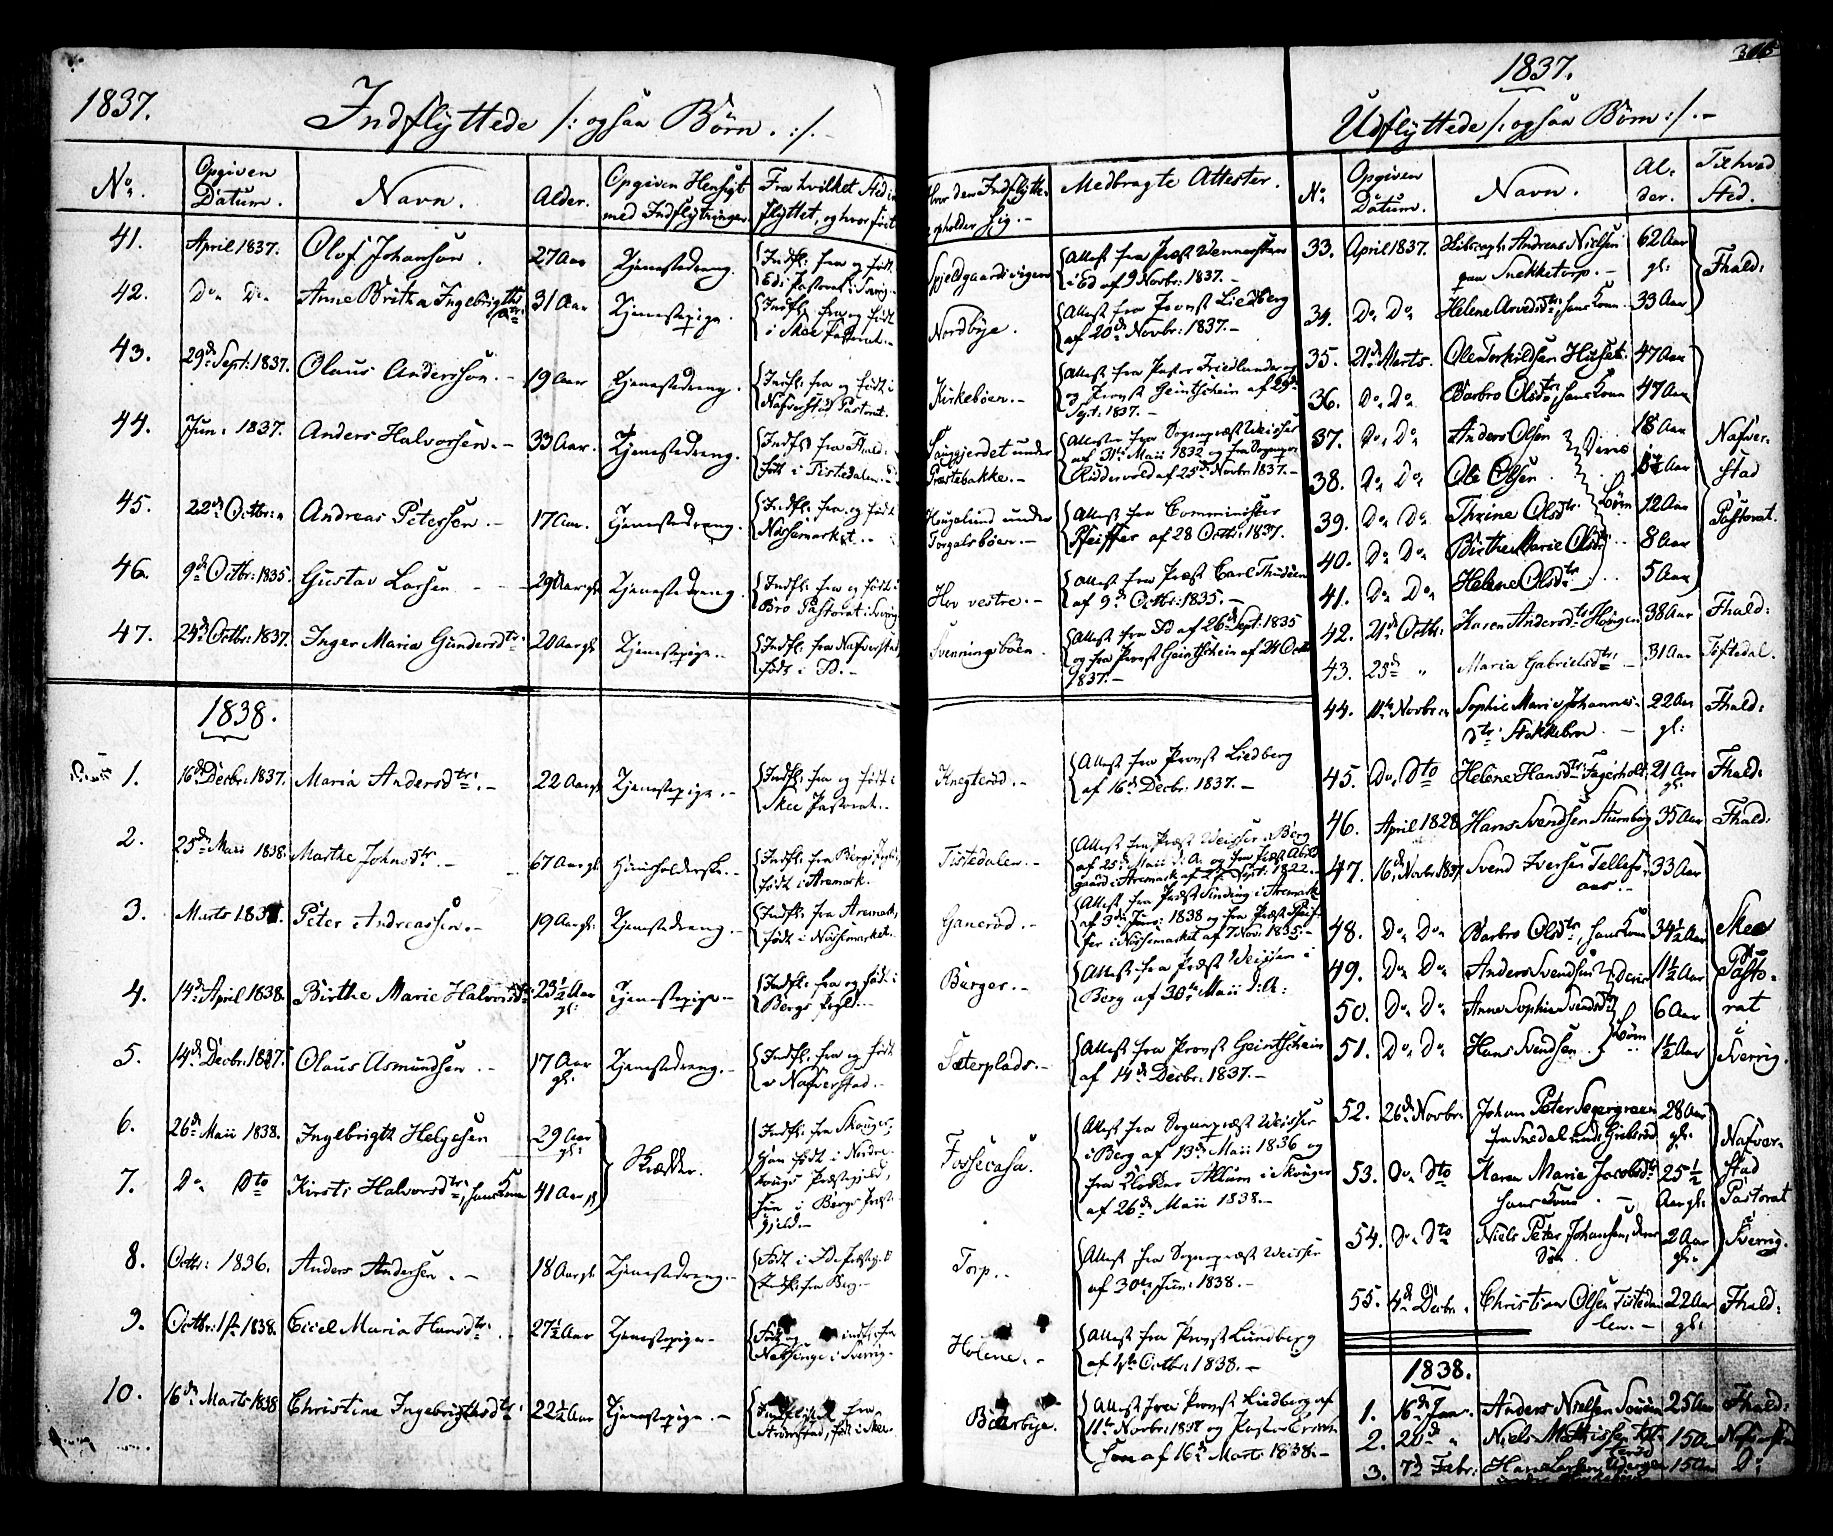 1837.
Indflyttede /: ogsaa Börn. :/. -
No.
Opgiven Datum.
Navn.
Alder.
Opgiven Hensigt med Indflytningen
Fra hvilket Sted indflyttet, og hvor født
41. April 1837. Olof Johanson. 27 Aar Tjenestedreng. Indfl: fra og født
Eds Pastorat i Sverig
42. Do Do Anne Britha Ingebrigths dtr 31 Aar Tjenestepige. Indfl: fra og født
i Skee Pastorat. -
43. 29de Sept: 1837. Olaus Andersson. - 19 Aar Tjenestedreng. Indfl: fra og født i
Nafverstad Pastorat.
44. Jun: 1837. Anders Halvorsen. - 33 Aar. Tjenestedreng. Indfl: fra Fhald:
født i Tistedalen. -
45. 22de Octbr: Andreas Petersen. - 17 Aar. Tjenestedreng. Indfl: fra og født
Nössemarket. -
46. 9de Octbr: 1835. Gustav Larsen - 29 Aar gl Tjenestedreng. Indfl: fra og født i
Bro Pastorat i Sverig
47. 24de Octbr: 1837. Inger Maria Gundersdtr: 20 Aar gl Tjenestepige. - Indfl: fra Nafverstad
født i Id. -
1838.
1. 16de Decbr: 1837. Maria Andersdtr: - 22 Aar gl Tjenestepige. - Indfl: fra og født i
Skee Pastorat. -
2. 25de Maii 1838. Marthe Johnsdtr. - 67 Aar gl Huusholderske. - Indfl: fra Bergs
født i Aremark.
3. Marts 1837. Peter Andreassen. - 19 Aar gl: Tjenestedreng. - Indfl: fra Aremark,
født i Nössemarket.
4. 14de April 1838. Birthe Marie Halvorsdtr 23½ Aar gl: Tjenestepige - Indfl: fra og født i
Bergs Prgld. -
5. 14de Decbr: 1837. Olaus Asmundsen. - 17 Aar gl: Tjenestedreng. - Indfl: fra og født
i Nafverstad. -
6. 26de Maii 1838. Ingebrigth Helgesen 29 Aar gl: Skrædder. Indfl: fra Skouger,
Han født i Nordre-
7. Do Dto Kirsti Halvorsdtr:, hans Kone 41 Aar gl
Præstegjeld,
hun i Bergs Præste-
gjeld. -
8. Octbr: 1836. Anders Andersen. - 18 Aar gl: Tjenestedreng. - Født i Id Præstegjeld
Indfl: fra Berg. -
9. Octbr: 1ste 1838. Maria Hansdtr: 27½ Aar Tjenestepige - Født og indfl: fra
i Sverrig -
10. 16de Marts 1838 Christine Ingebrigtsdtr: 22½ Aar Tjenestepige. - Indflyttet fra
født i Skee
Hvor den Indflyttede opholder sig. -
Medbragte Attester.
Spjeldgaardsvigen Attest fra Præst Wennerstrøm
i Ed af 9 Novbr: 1837. -
Nordbye. Attest fra Provst Liedberg
af 20de Novbr: 1837. -
Kirkebøen. - Attest fra Pastor Friedlander og
og Provst Geintschein af 29de
Sept. 1837. -
under
Præstebakke. - Attester fra Sognepræst Weisser
af 31te Maii 1832 og fra Sognepr:
Riddervold af 25de Novbr: 1837. -
Hugelund under
Torgalsbøen. - Attest fra Comminister
Pfeiffer af 28 Octbr: 1837.
Hov vestre. - Attest fra Præst Carl Thudeen
af 9de Octbr: 1835. -
Svenningsbøen. Attest fra Id af 26de Sept: 1835
og fra Provst Geintschein af 24 Octbr
1837. -
Knegterød. - Attest fra Provst Liedberg
af 16de Decbr: 1837. -
Tistedalen. - Attest fra Præst Weisser i Berg
af 25de Maii d: A. og fra Præst
gaard i Aremark af Sept: 1822. -
Ganerød. - Attest fra Præst Sinding i Aremark
af 3die Juni: 1838 og fra Præst Pfeif-
fer i Nössemarket af 7 Nov: 1835. -
Berger. - Attest fra Præst Weisser i
Berg af 30te Maii d: A:
Sæterplads. - Attest fra Provst Geintschein
af 14de Decbr: 1837. -
Fossecasa. Attest fra Sognepræst Weisser
i Berg af 13de Maii 1836 og
fra Klokker Allum i Skouger
af 26de Maii 1838. -
Torp. - Attest fra Sognepræst Weisser
af 30te Jun: 1838. -
Holene. - Attest fra Provst Lundberg
af 1ste Octbr: 1838. -
Bærbye. Attest fra Provst Liedberg af
11te Novbr: 1837 og Pastor
af 16de Marts 1838. -
1837.
Udflyttede /: ogsaa Börn :/. -
No
Opgiven Datum.
Navn.
Alder.
Til hvad Sted.
33. April 1837. Andreas Nielsen
paa Snekketorp. - 62 Aar gl: Fhald:
34. Do Do Helene Arvesdtr: hans Kone. 33 Aar
35. 21de Marts. Ole Torkildsen 47 Aar Nafver-
stad
Pastorat.
36. Do Do Barbro Olsdtr, hans Kone 47 Aar
37. Do Do Anders Olsen Deres 18 Aar
38. Do Do Ole Olsen Aar
39. Do Do Thrine Olsdtr Børn 12 Aar
40. Do Do Birthe Marie Olsdtr 8 Aar
41. Do Do Helene Olsdtr 5 Aar
42. 21de Octbr: Karen Andersdtr 38 Aar Fhald:
43. 25de " Maria Gabrielsdtr: - 31 Aar Tistedal.
44. 11te Novbr: Sophie Marie Johannes-
dtr: Stokkebro. - 22 Aar gl: Fhald:
45. Do Dto Helene Hansdtr: Fagerholt 21 Aar gl: Fhald:
46. April 1828 Hans Svendsen 35 Aar Fhald:
47. 16de Novbr 1837. Svend Iversen Tellefs-
aas. - 33 Aar Skee
Pasto-
rat
i
Sverrig.
48. Do Do Barbro Olsdtr, hans Kone 34½ Aar
49. Do Do Anders Svendsen Deres 11½ Aar
50. Do Do Anne Sophie Svendsdtr Børn 6 Aar
51. Do Do Hans Svendsen 1½ Aar
52. 26de Novbr: Johan Peter Segergreen
28 Aar gl: Nafver-
stad
Pastorat
i Sverrig.
53. Do Dto Karen Marie Jacobsdtr
hans Kone - 25½ Aar gl:
54. Do Dto Niels Peter Johansen, deres
Søn 2 Aar gl:
55. 4de Decbr: Christian Olsen Tisteda-
len. - 22 Aar gl: Fhald:
1838.
1. 16de Jan: Anders Nielsen 25 Aar Fhald:
2. 20de " Niels Mathissen 15 Aar Nafverstad
3. 7de Febr: Hans Larsen 15 Aar Do